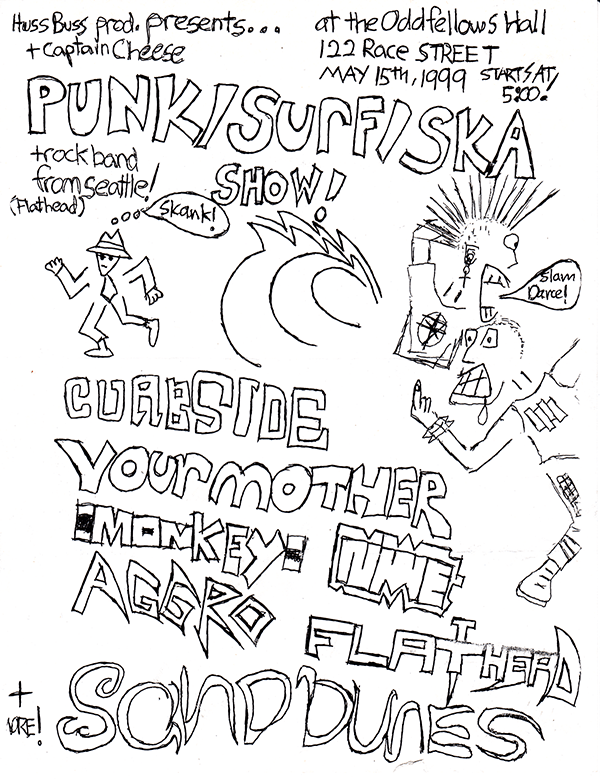 Huss Buss prod. presents...
+ Captain Cheese
at the Oddfellows Hall
122 Race STREET
MAY 15th, 1999 STARTS AT
5:00!
PUNK/SURF/SKA
SHOW!
+rock band
from seattle!
(Flathead)
Skank!
Slam
Dance!
CURBSIDE
YOUR MOTHER
MONKEY
AGGRO
FLATHEAD
SAND DUNES
+
MORE!